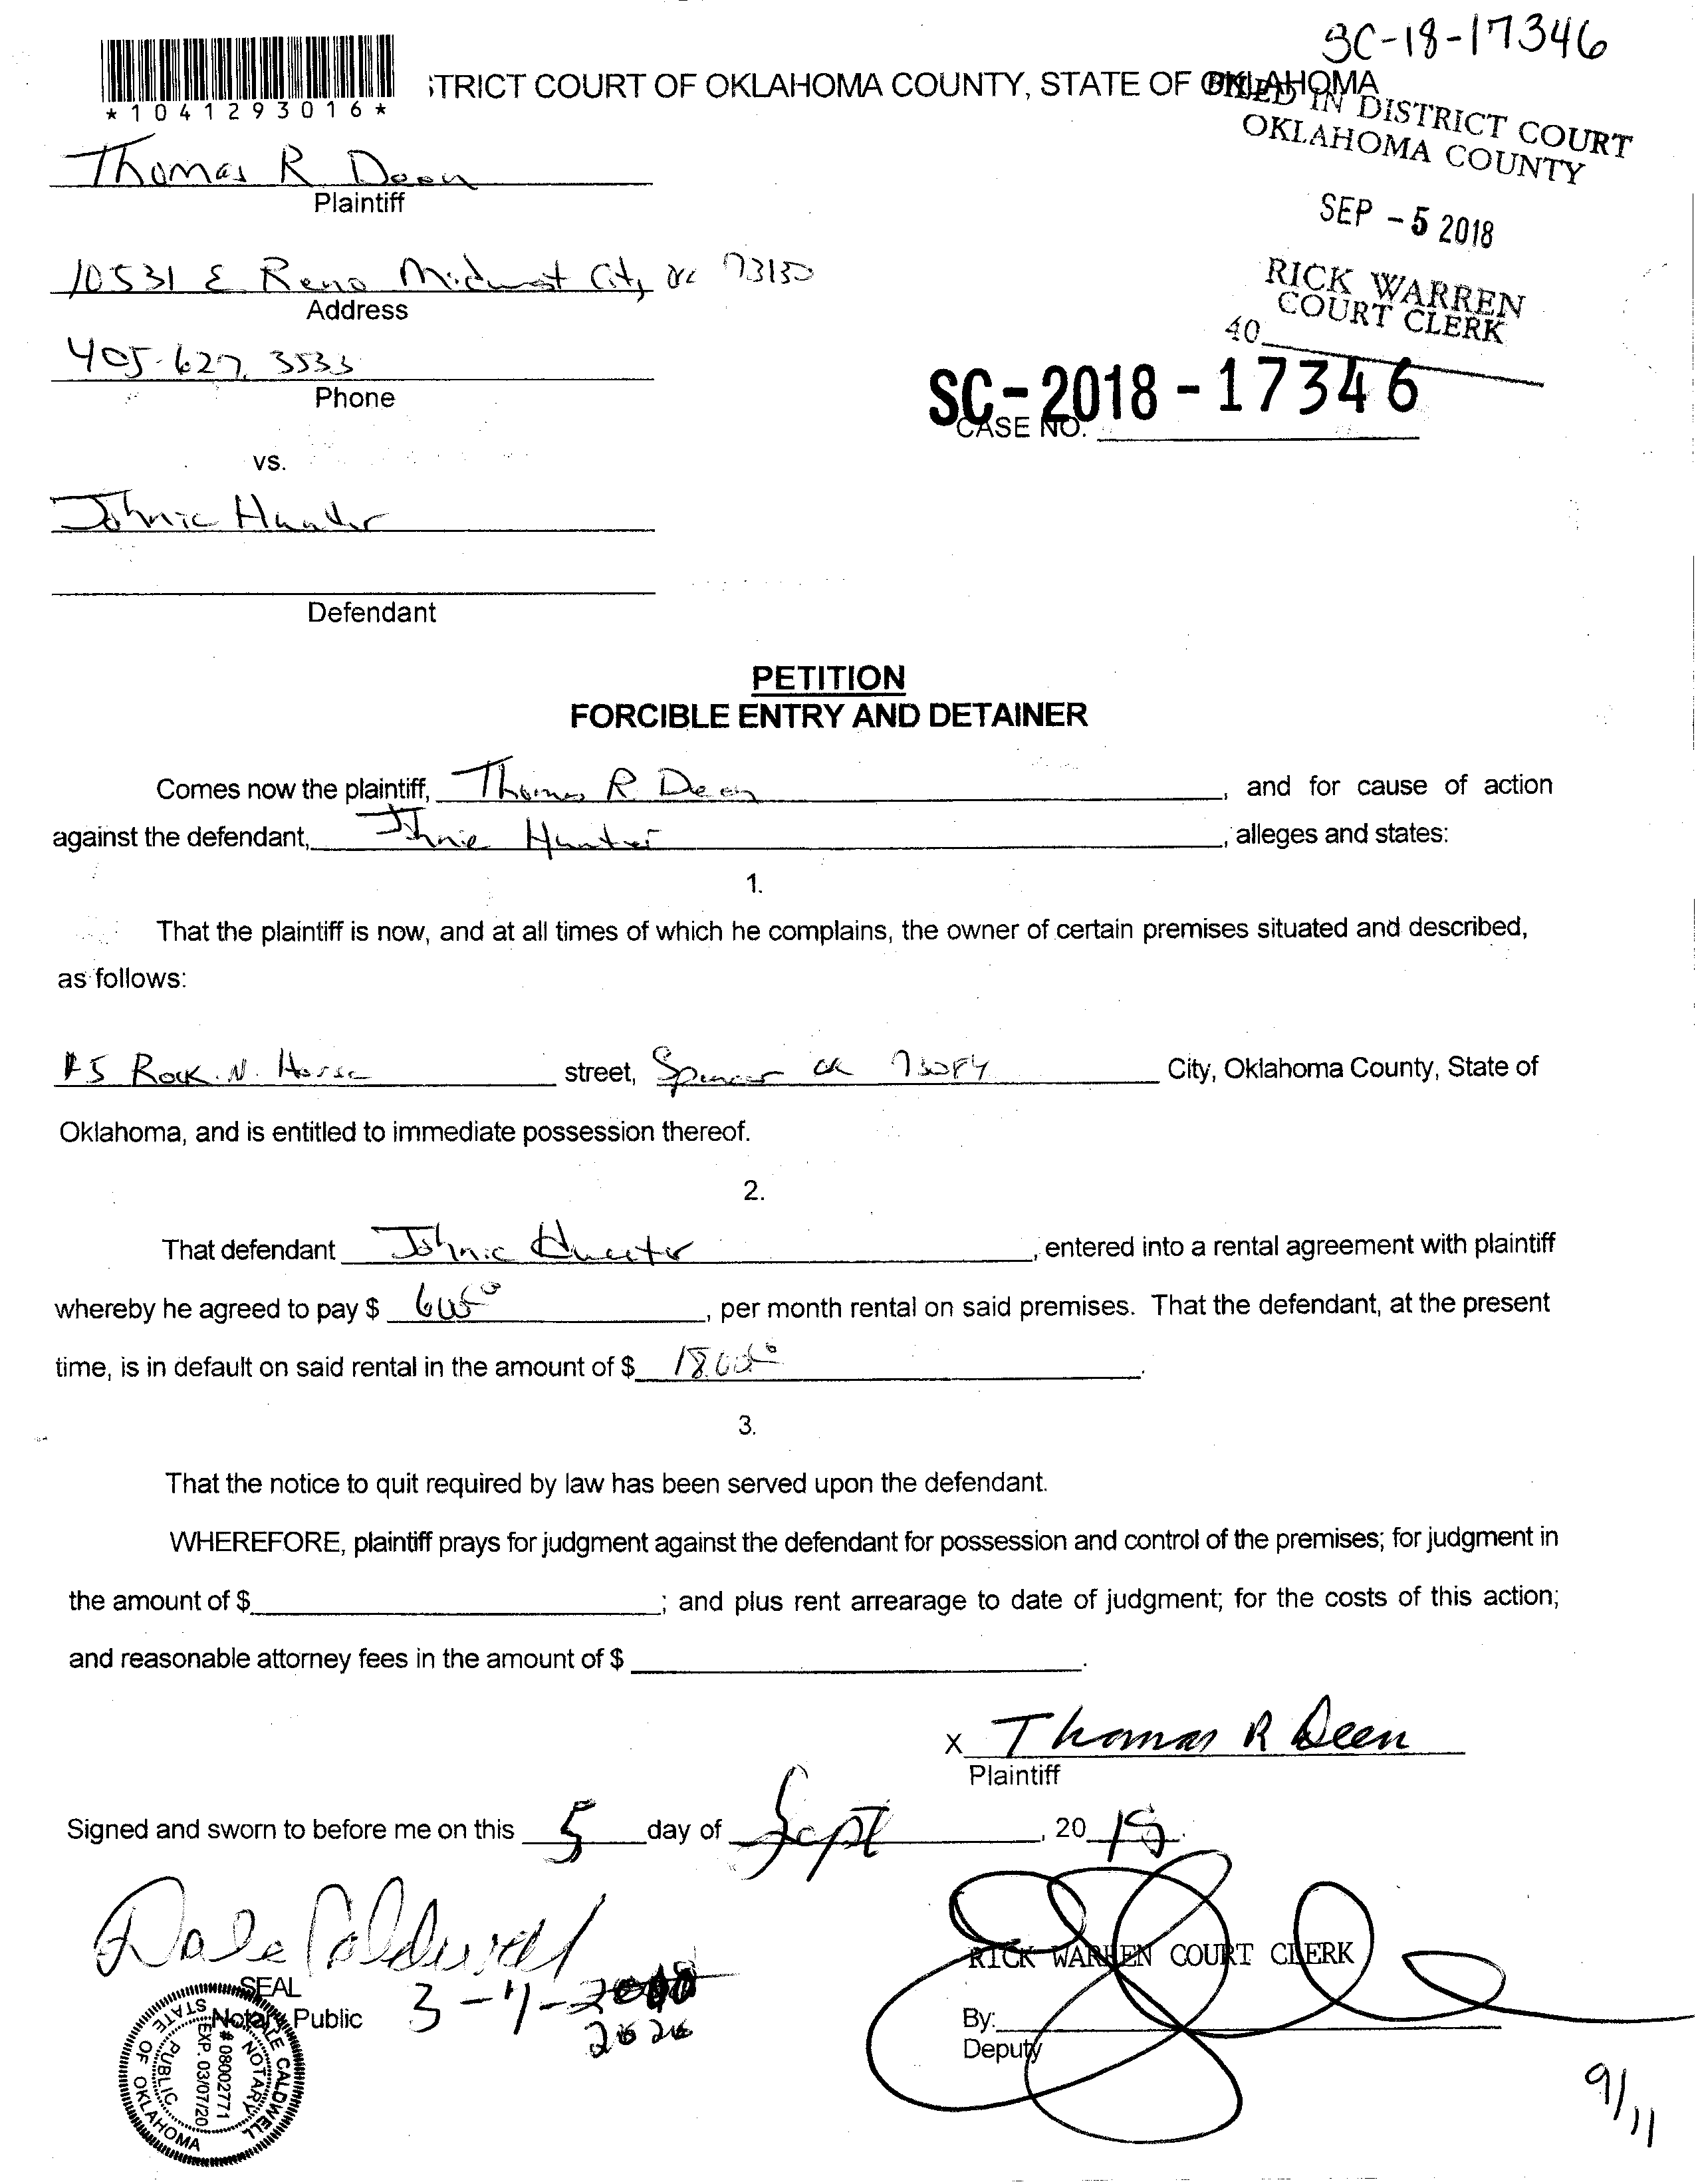 SC-18-17346
*1041293016*
STRICT COURT OF OKLAHOMA COUNTY, STATE OF OKLAHOMA
FILED IN DISTRICT COURT
OKLAHOMA COUNTY
SEP -5 2018
RICK WARREN
COURT CLERK
40
Thomas R Deen
Plaintiff
10531 E Reno Midwest City OK 73130
Address
405-627-3533
Phone
SC-2018-17346
CASE NO.
vs.
Johnie Hunter
Defendant
PETITION
FORCIBLE ENTRY AND DETAINER
Comes now the plaintiff, Thomas R Deen, and for cause of action
against the defendant, Johnie Hunter, alleges and states:
1.
That the plaintiff is now, and at all times of which he complains, the owner of certain premises situated and described,
as follows:
#5 Rock N. Horse street, Spencer OK 73084 City, Oklahoma County, State of
Oklahoma, and is entitled to immediate possession thereof.
2.
That defendant Johnie Hunter, entered into a rental agreement with plaintiff
whereby he agreed to pay $, per month rental on said premises. That the defendant, at the present
time, is in default on said rental in the amount of $.
3.
That the notice to quit required by law has been served upon the defendant.
WHEREFORE, plaintiff prays for judgment against the defendant for possession and control of the premises; for judgment in
the amount of $; and plus rent arrearage to date of judgment; for the costs of this action;
and reasonable attorney fees in the amount of $.
x Thomas R Deen
Plaintiff
Signed and sworn to before me on this 5 day of Sept, 2018.
Dale Caldwell
SEAL
Notary Public 3-7-
2020
DALE CALDWELL
NOTARY PUBLIC
STATE OF OKLAHOMA
# 08002771
EXP. 03/07/20
RICK WARREN COURT CLERK
By:
Deputy
9/11